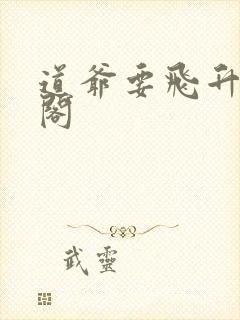 道爺要飛升
閣
武靈